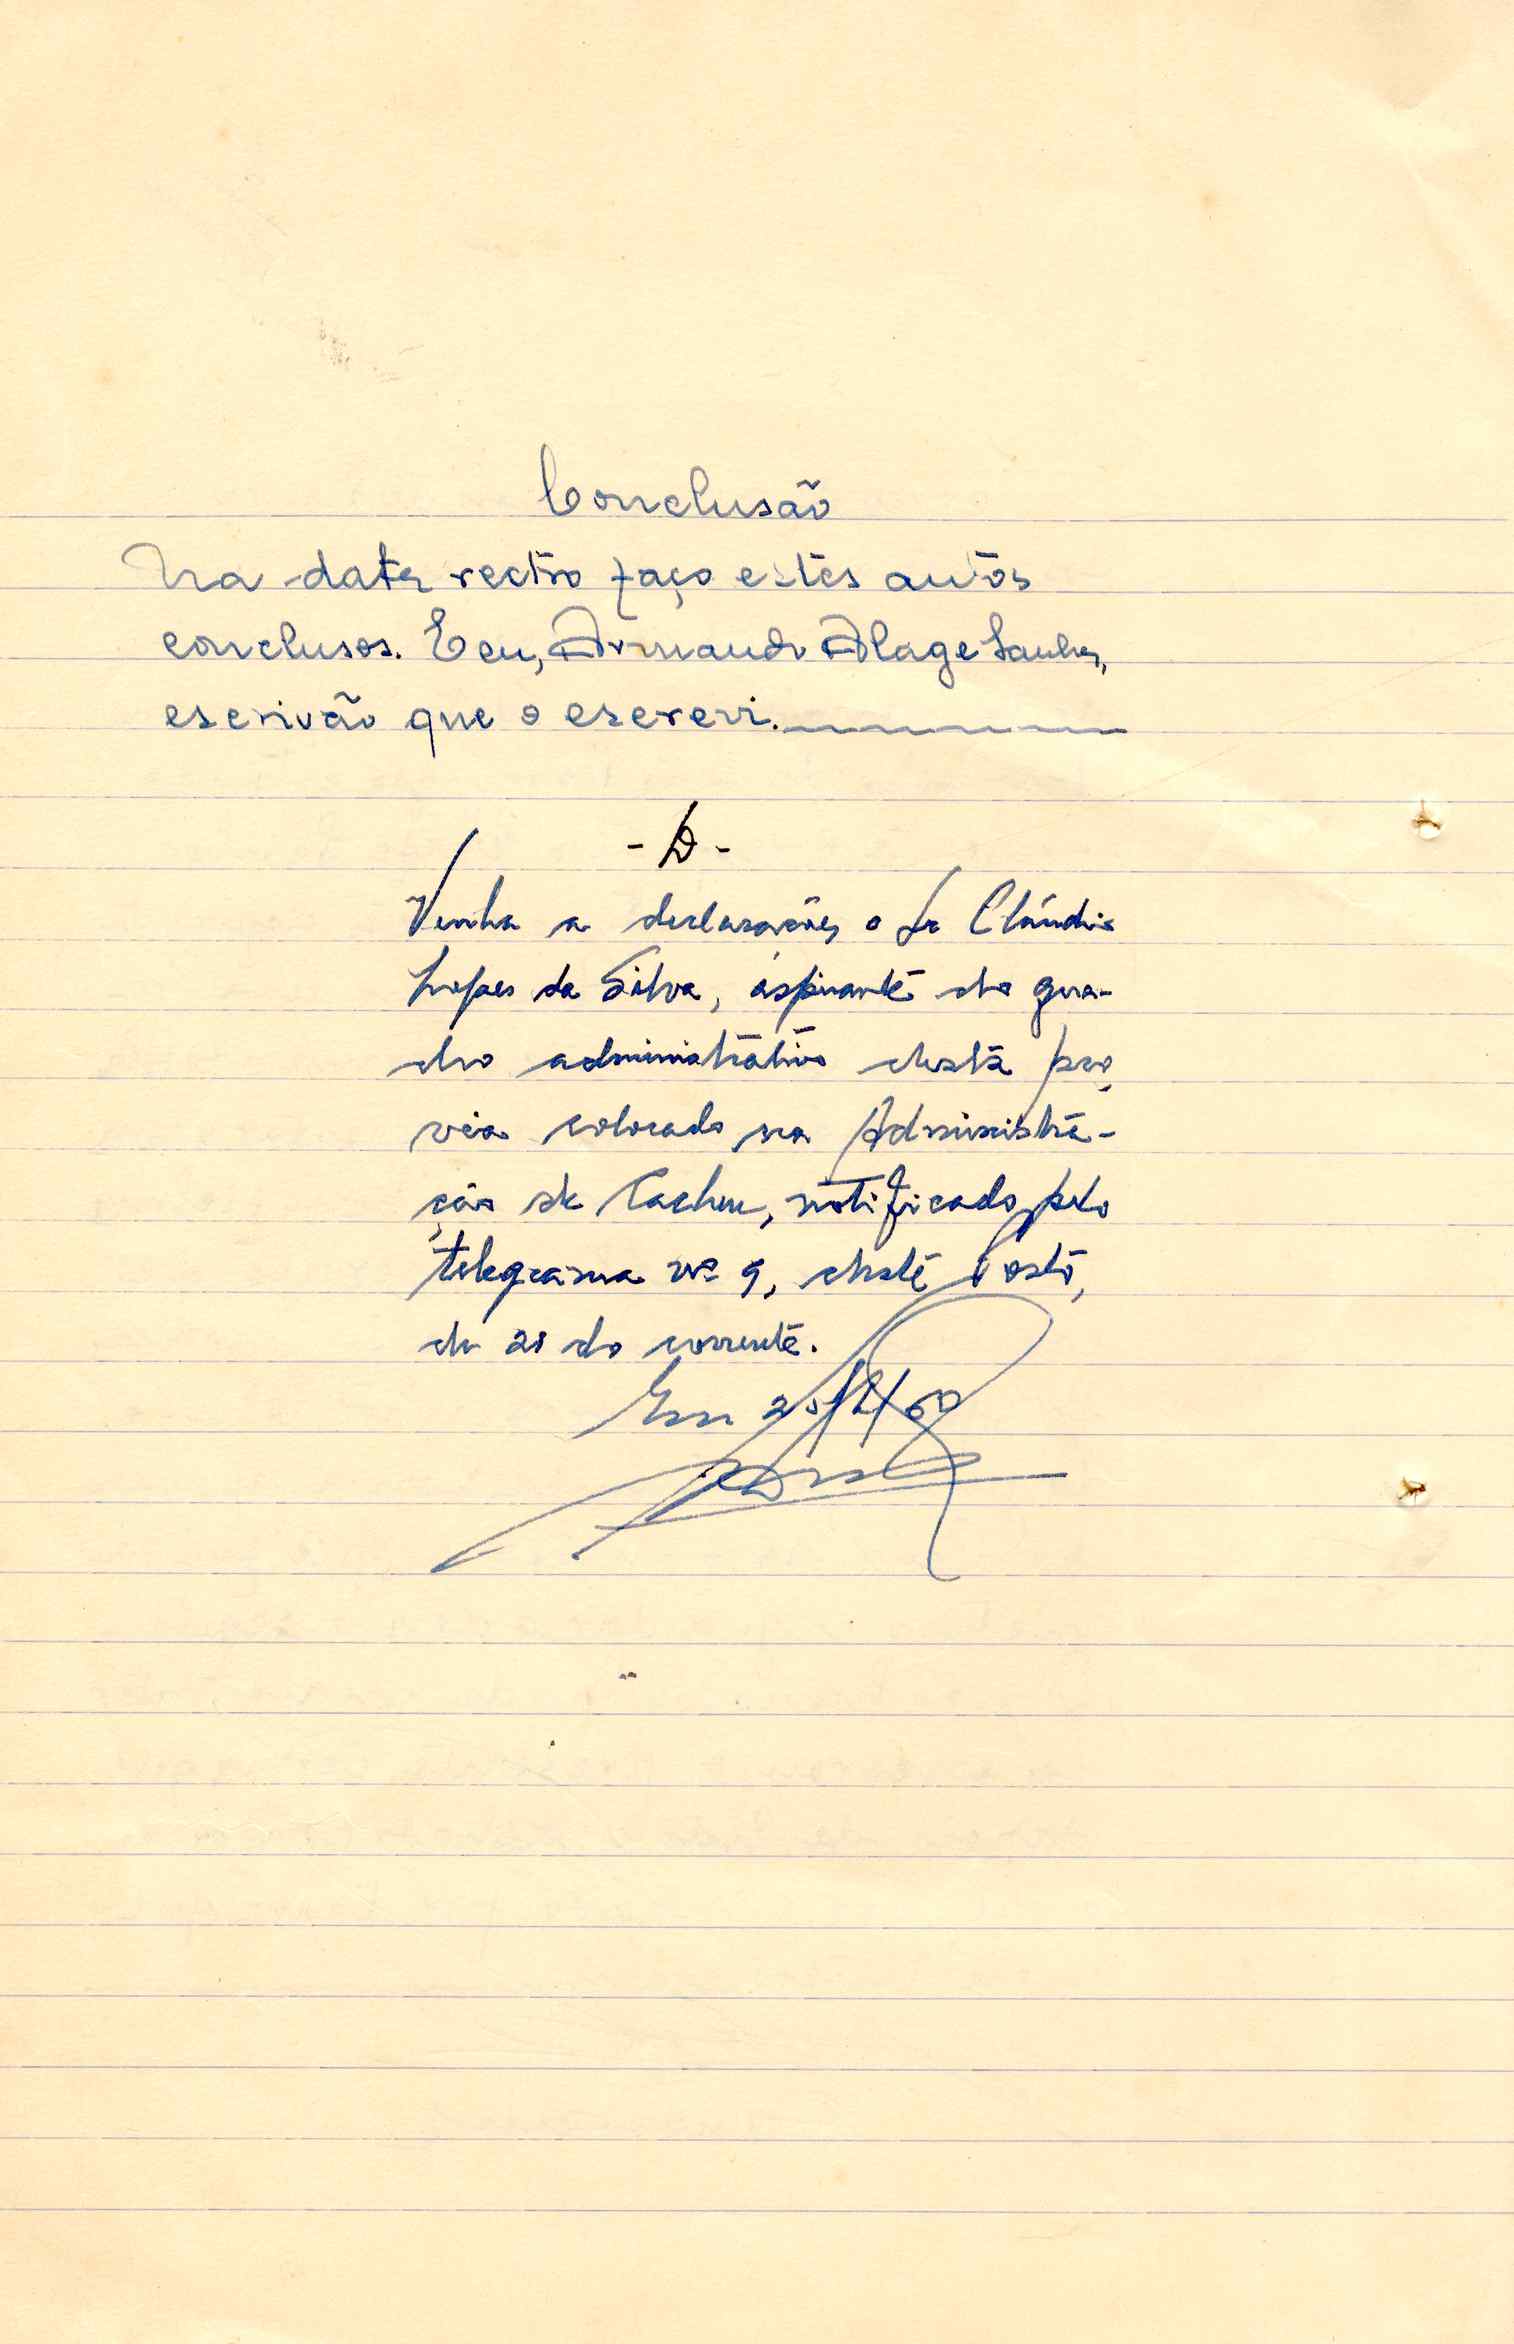 Conclusão
Na data rectro faço estes autos
conclusos. E eu, Armando Alage
escrivão que o escrevi.
- D -
Venha a declarações o Sr Cláudio
Lopes da Silva, aspirante do qua-
dro administrativo desta pro
vcia colocado na Administra-
ção de Cacheu, notificado pelo
telegrama nº 9, deste Posto,
de 20 do corrente.
Em 20/2/60